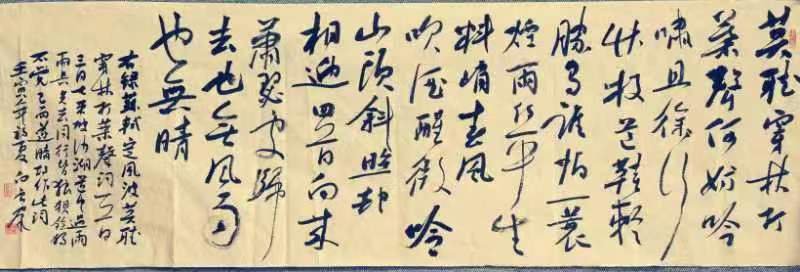 莫聽穿林打
葉聲何妨吟
嘯且徐行
竹杖芒鞋輕
勝馬誰怕一蓑
煙雨任平生
料峭春風
吹酒醒微冷
山頭斜照却
相迎回首向來
蕭瑟處歸
去也無風雨
也無晴
右錄蘇軾定風波莫聽
穿林打葉聲詞一首
三月七日沙湖道中遇雨
雨具先去同行皆狼狽余獨
不覺已而遂晴故作此詞
壬寅年初夏